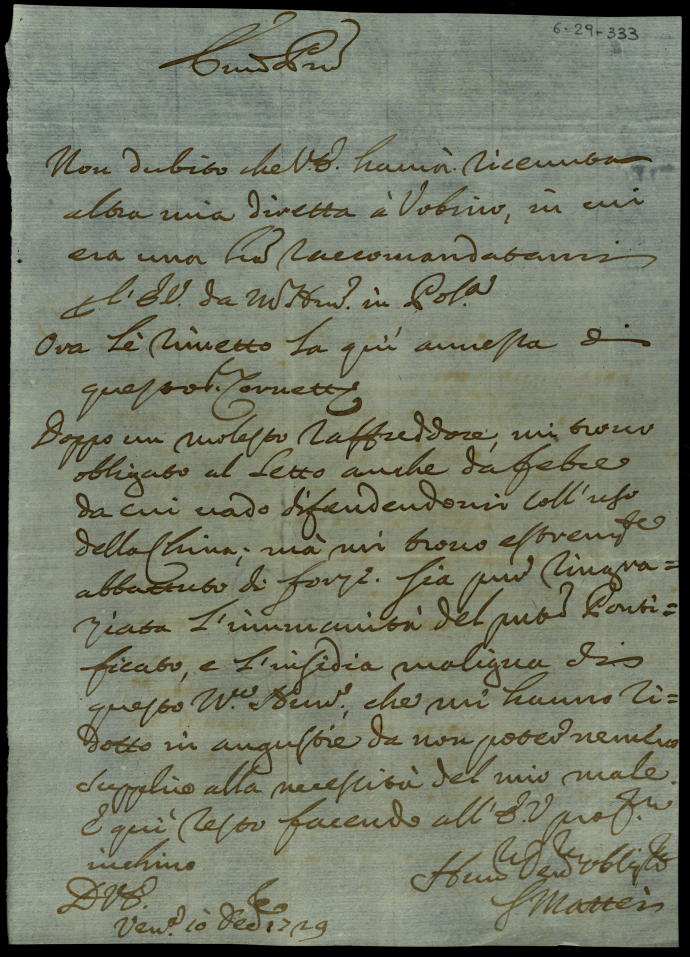 6-29-333
Non dubito che V.E. havrà ricevuta
altra mia diretta à Urbino, in cui
era una raccomandatami
l'E.V. da in Pol.a
Ora Le rimetto La qui annessa di
questo
Doppo un molesto raffreddore, mi trovo
obligato al Letto anche dà febre
da cui vado difendendomi coll'uso
della China; mà mi trovo estrem.te
abbattuto di forze. Sia pur ringra=
ziata L'inumanità del Ponti=
ficato, e L'insidia maligna di
questo che mi hanno ri=
dotto in angustie da non poter nemeno
supplire alla necessità del mio male.
E qui resto facendo all'E.V. prof.mo
inchino
D.V.E.
Ven.a 10 1729